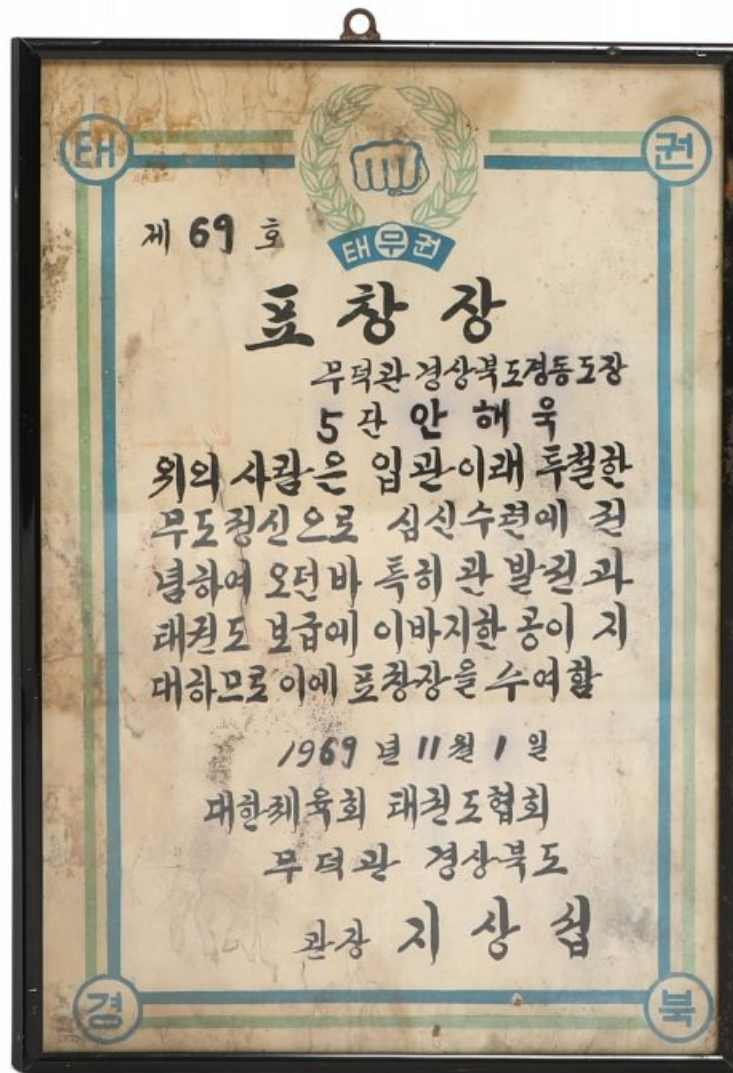 태 권
태무권
제 69 호
표창장
무덕관 경상북도경동도장
5단 안해욱
위의 사람은 입관이래 투철한
무도정신으로 심신수련에 전
념하여 오던바 특히 관 발전과
태권도 보급에 이바지한 공이 지
대하므로 이에 표창장을 수여함
1969년 11월 1일
대한체육회 태권도협회
무덕관 경상북도
관장 지상섭
경 북